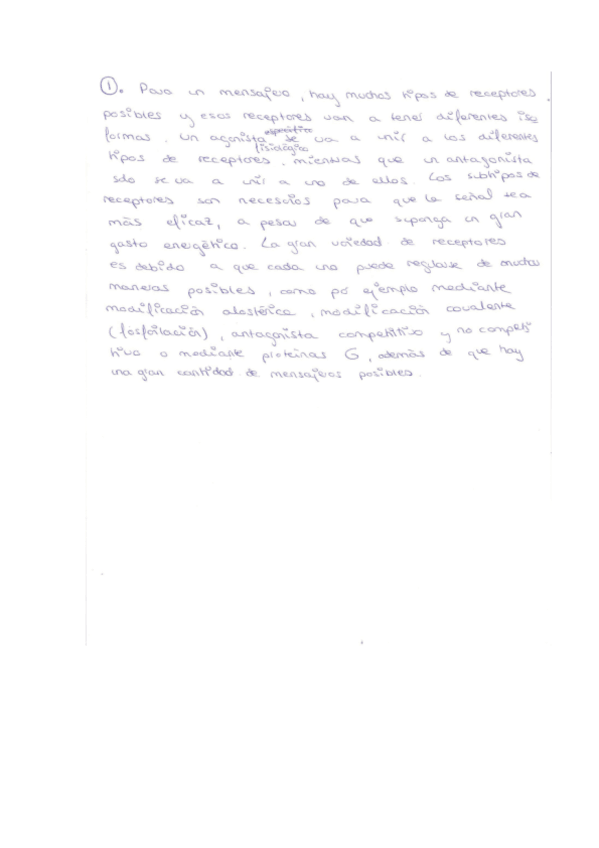 ①. Para un mensajero, hay muchos tipos de receptores
posibles y esos receptores van a tener diferentes iso
formas. Un agonista específico fisiológico se va a unir a los diferentes
tipos de receptores, mientras que un antagonista
sólo se va a unir a uno de ellos. Los subtipos de
receptores son necesarios para que la señal sea
más eficaz, a pesar de que suponga un gran
gasto energético. La gran variedad de receptores
es debido a que cada uno puede regularse de muchas
maneras posibles, como por ejemplo mediante
modificación alostérica, modificación covalente
(fosforilación), antagonista competitivo y no competi
tivo o mediante proteínas G, además de que hay
una gran cantidad de mensajeros posibles.